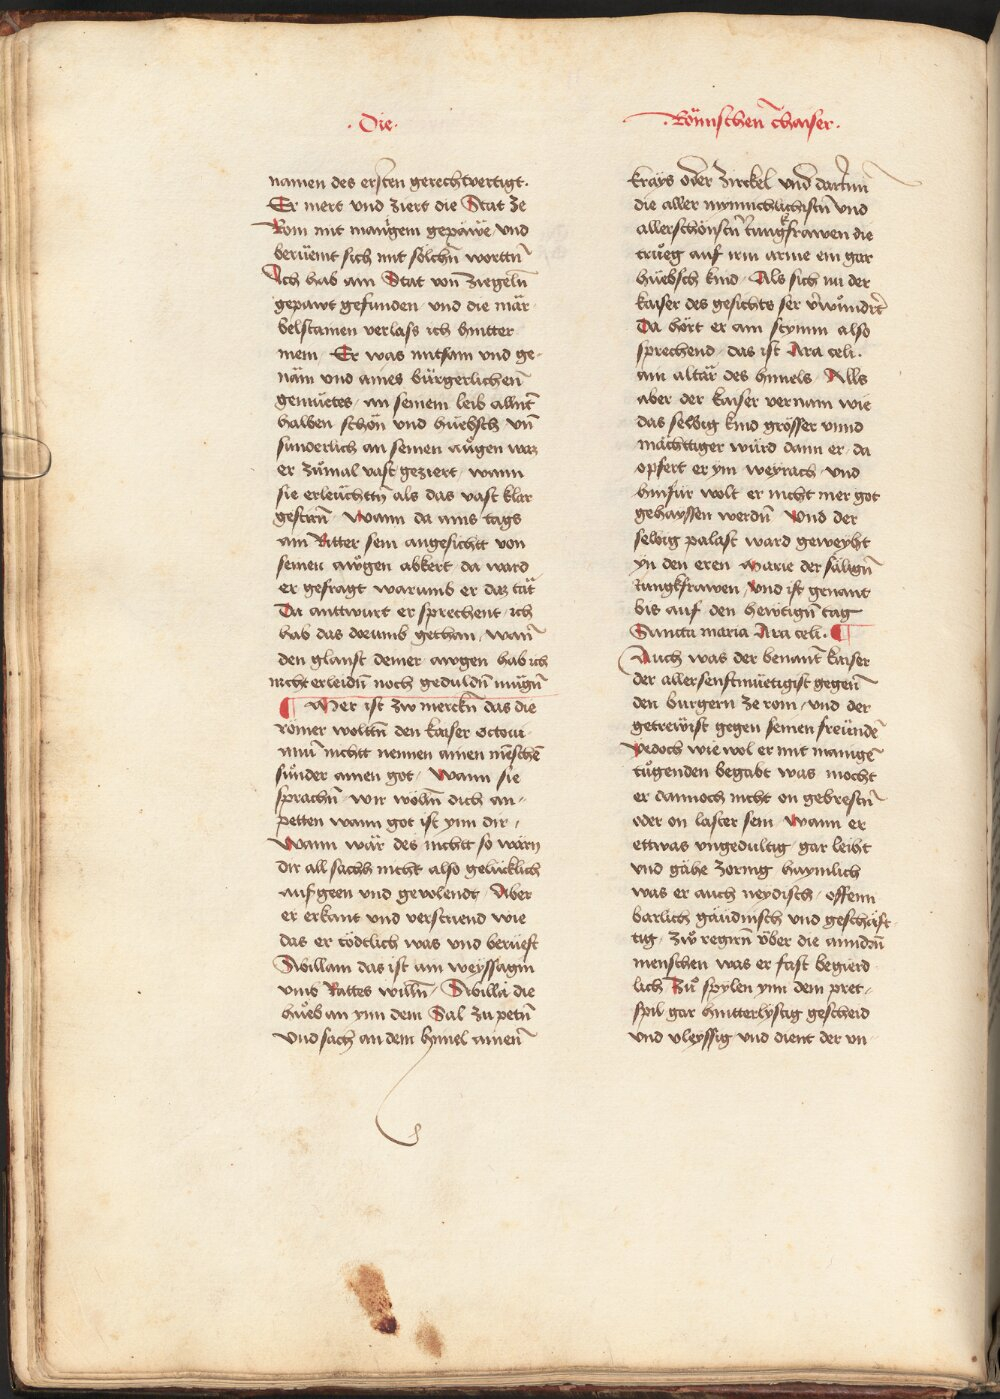 · Die ·
· Römischen chaiser ·
namen des ersten gerechtvertigt ·
Er mert vnd ziert die Stat ze
Rom mit manigem gepäwe / vnd
berüemt sich mit sölchn̄ worttn̄
Ich hab ain Stat von̄ ziegeln̄
gepawt gefunden vnd die mär
belstainen verlass ich hintter
mein / Er was nutsam vnd ge-
näm vnd aines bürgerlichen̄
gemüetes / an seinem leib allnt̄
halben schön vnd hüebsch vn̄
sunderlich an seinen augen waz
er zümal vast geziert / wann
sie erleüchttn̄ als das vast klar
gestirn̄ / Wann da ains tags
ain Ritter sein angesichtt von
seinen awgen abkert da ward
er gefragt warumb er daz tät
Da anttwurt er sprechent / ich
hab das dorumb gethan / wan̄
den glanst deiner awgen hab ich
nicht erleidn̄ noch geduldn̄ mügn̄
¶ Mer ist zw merckn̄ das die
römer wolttn̄ den kaiser octoui-
anū nichtt nennen ainen mēschen̄
sunder ainen got / Wann sie
sprachn̄ wir wölln̄ dich an-
petten wann got ist ynn dir /
Wann wär des nichtt so wärn
dir all sachh nicht also gelücklich
aufgeen vnd gewlendt / Aber
er erkant vnd verstuend wie
das er tödtlich was vnd berüeft
Sibillam das ist ain weyssagin
vmb Rattes willn̄ / Sibilla die
hueb an ynn dem Sal zu petn̄
vnd sach an dem hymel ainen̄
krays oder zirckel vnd darinn
die aller mynnichlichistn̄ vnd
allerschönstn̄ iungkfrawen die
trueg auf irm arme ein gar
hüebsch kind / Als sich nu der
kaiser des gesichts ser v̄wundrt̄
Da hört er ain stymm also
sprechend / das ist Ara celi ·
ain altär des himels / Alls
aber der kaiser vernam wie
das selbig kind grösser vnnd
mächttiger würd dann er / da
opfert er ym weyrach / vnd
hinfür wolt er nicht mer got
gehayssen werdn̄ Vnd der
selbig palast ward geweyht
yn den eren Marie der sälign̄
iungkfrawen / vnd ist genant
bis auf den hewtign̄ tag
Sancta maria Ara celi · ¶
Auch was der benant̄ kaiser
der allersenftmüetigist gegen̄
den burgern ze rom / vnd der
getrewist gegen seinen freünden̄
yedoch wie wol er mit manigē
tugenden begabt was mocht
er dannoch nicht on gebrestn̄
oder on laster sein / Wann er
ettwas vngedultig / gar leiht
vnd gähe zornig haymlich
was er auch neydisch / offenn
barlich gäudnisch vnd geschäft
tig / zw regirn̄ vber die anndn̄
menschen was er fast begierd
lich zu spylen ynn dem pret-
spil gar hintterlystig gescheid
vnd vleyssig vnd dient der vn